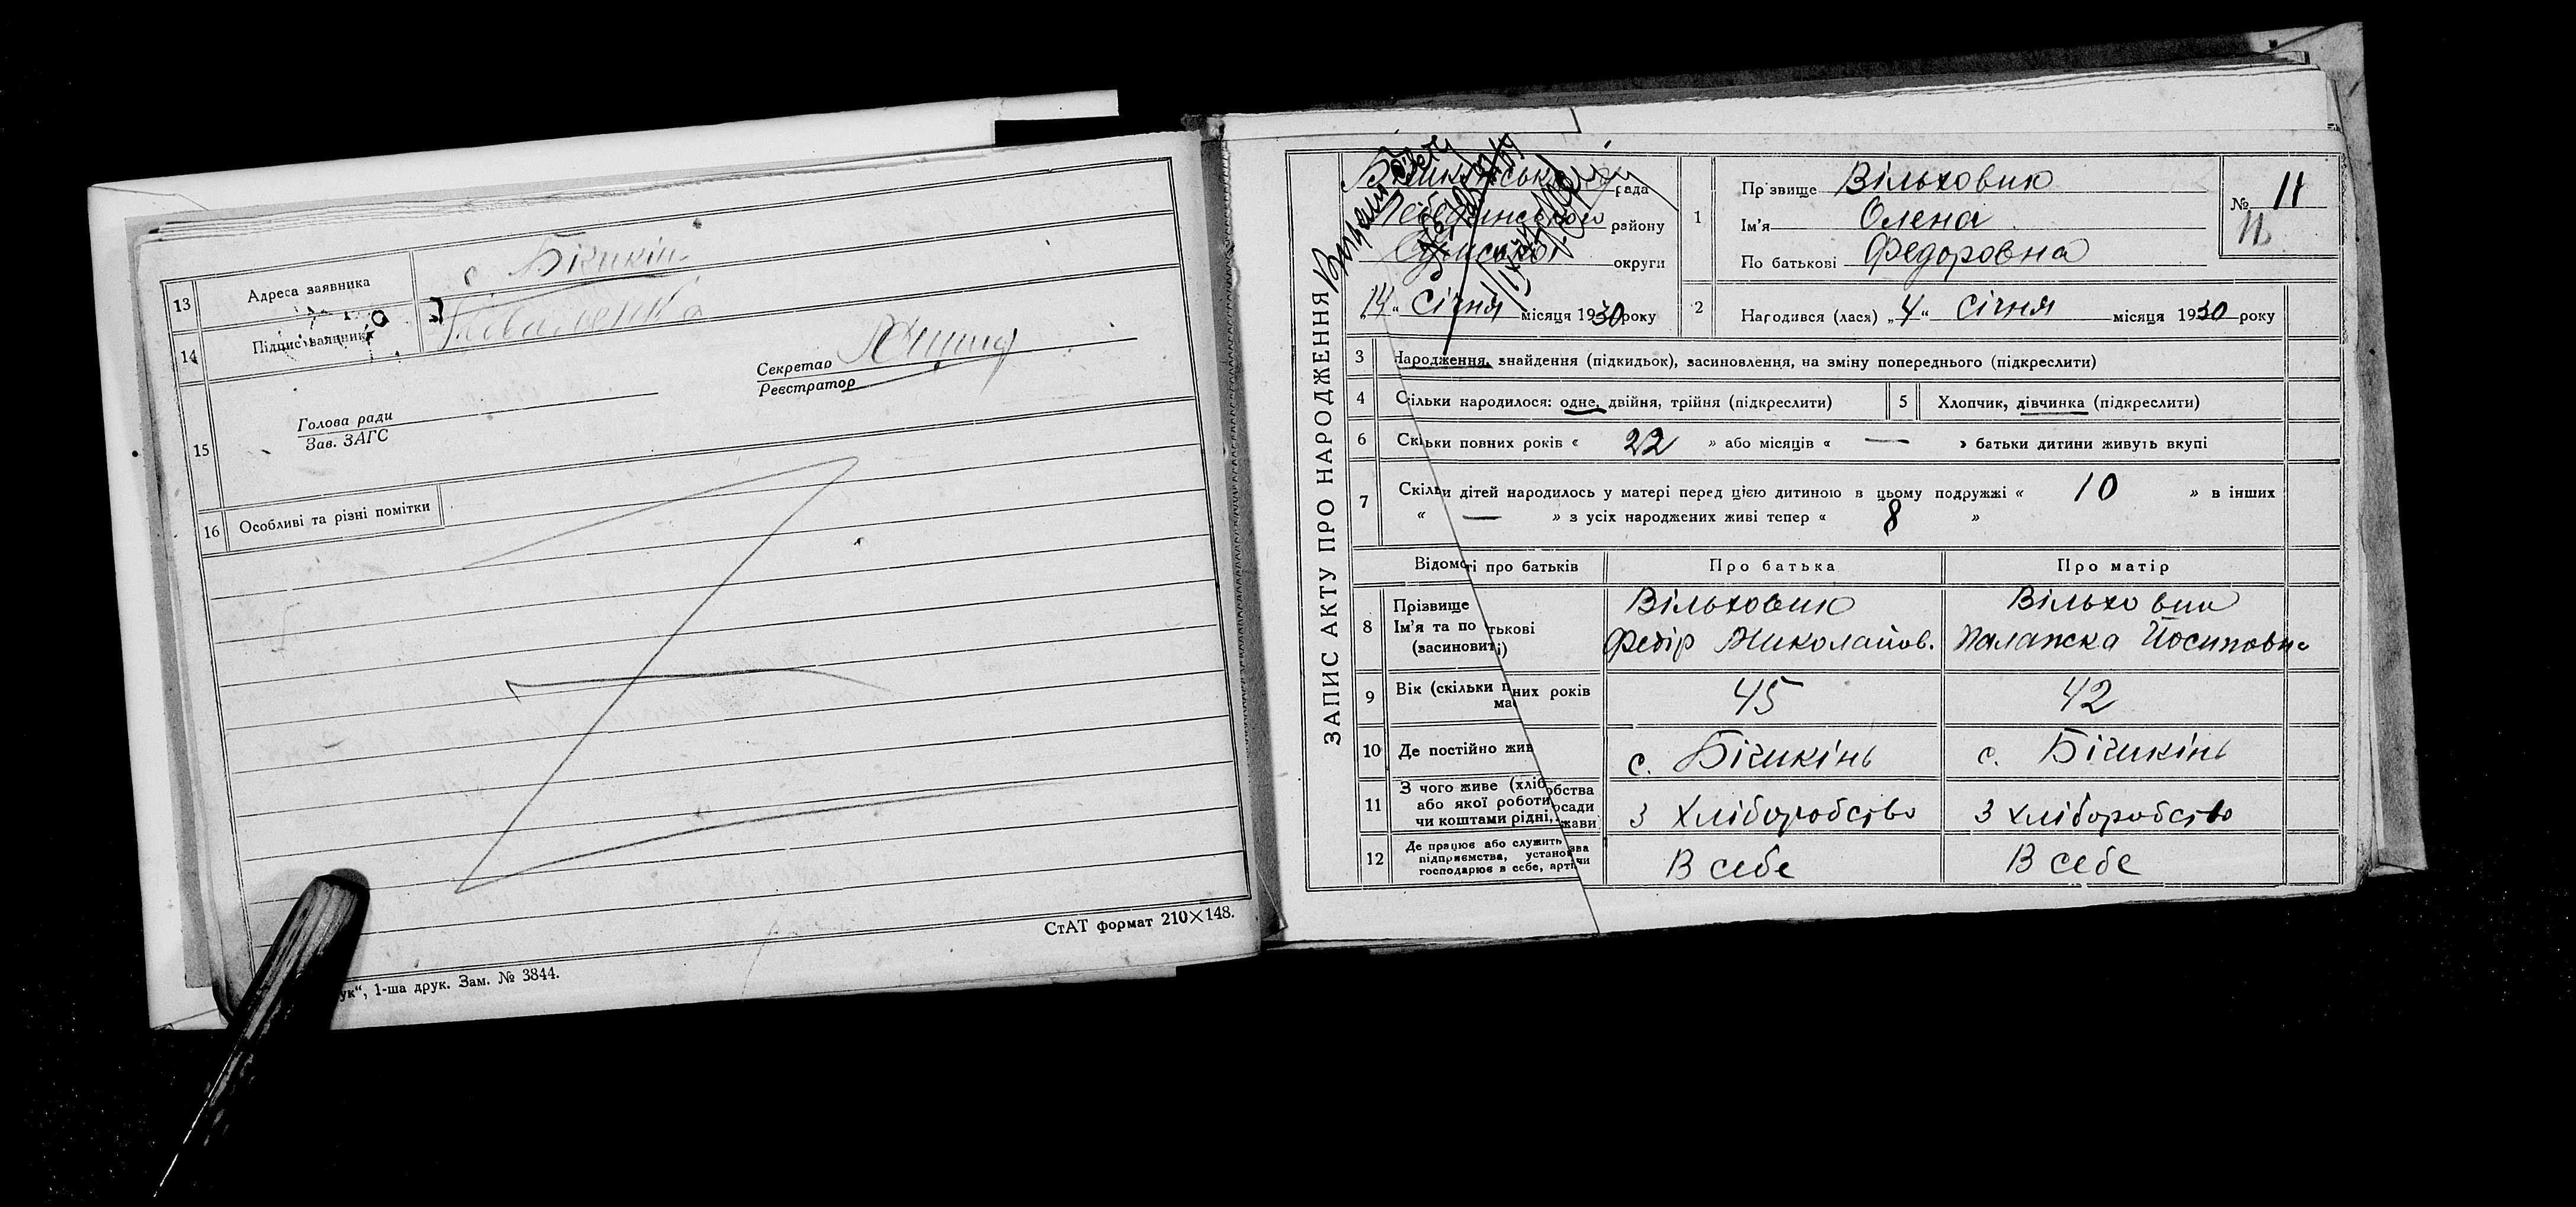 13 Адреса заявника с Бішкінь
14 Підпис заявника
15 Голова ради
Зав. ЗАГС
Секретар
Реєстратор
16 Особливі та різні помітки
СтАТ формат 210×148.
ук“, 1-ша друк. Зам. № 3844.
ЗАПИС АКТУ ПРО НАРОДЖЕННЯ
рада
району
округи
„14“ Січня місяця 1930 року
1 Прізвище Вільховик
Ім'я Олена
По батькові Федоровна
№ 11
11
2 Народився (лася) „4“ Січня місяця 1930 року
3 Народження, знайдення (підкидьок), засиновлення, на зміну попереднього (підкреслити)
4 Скільки народилося: одне, двійня, трійня (підкреслити) 5 Хлопчик, дівчинка (підкреслити)
6 Скільки повних років « 22 » або місяців « — » батьки дитини живуть вкупі
7 Скільки дітей народилось у матері перед цією дитиною в цьому подружжі « 10 » в інших
« — » з усіх народжених живі тепер « 8 »
Відомості про батьків Про батька Про матір
8 Прізвище Вільховик Вільховик
Ім'я та по тькові Федір Миколайов. Палажка Йосиповна
(засиновиті)
9 Вік (скільки п них років 45 42
має
10 Де постійно жив с. Бішкінь с. Бішкінь
11 З чого живе (хліб обства
або якої роботи осади З хліборобство З хліборобство
чи коштами рідні, жави
12 Де працює або служить зва
підприємства, установ чи В себе В себе
господарює в себе, арті